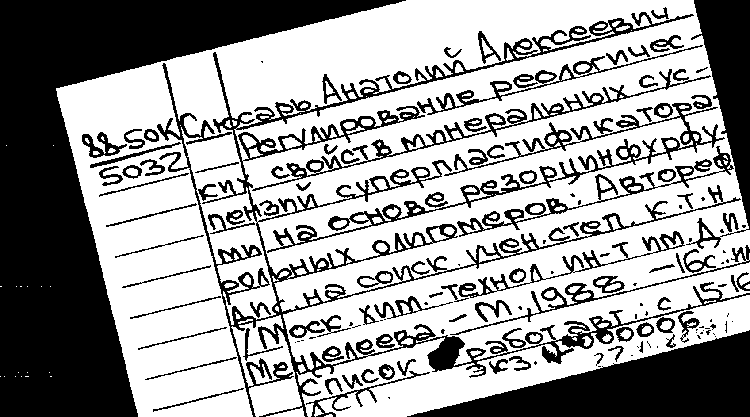 88-50К Слюсарь, Анатолий Алексеевич
5032 Регулирование реологичес-
ких свойств минеральных сус-
пензий суперпластификатора-
ми на основе резорцинфурфу-
рольных олигомеров: Автореф
дис. на соиск. учен. степ. к.т.н.
/ Моск. хим.-технол. ин-т им. Д.И.
Менделеева. - М., 1988. - 16с.: ил
Список работ авт.: с. 15-16
ДСП. Экз. 000006.